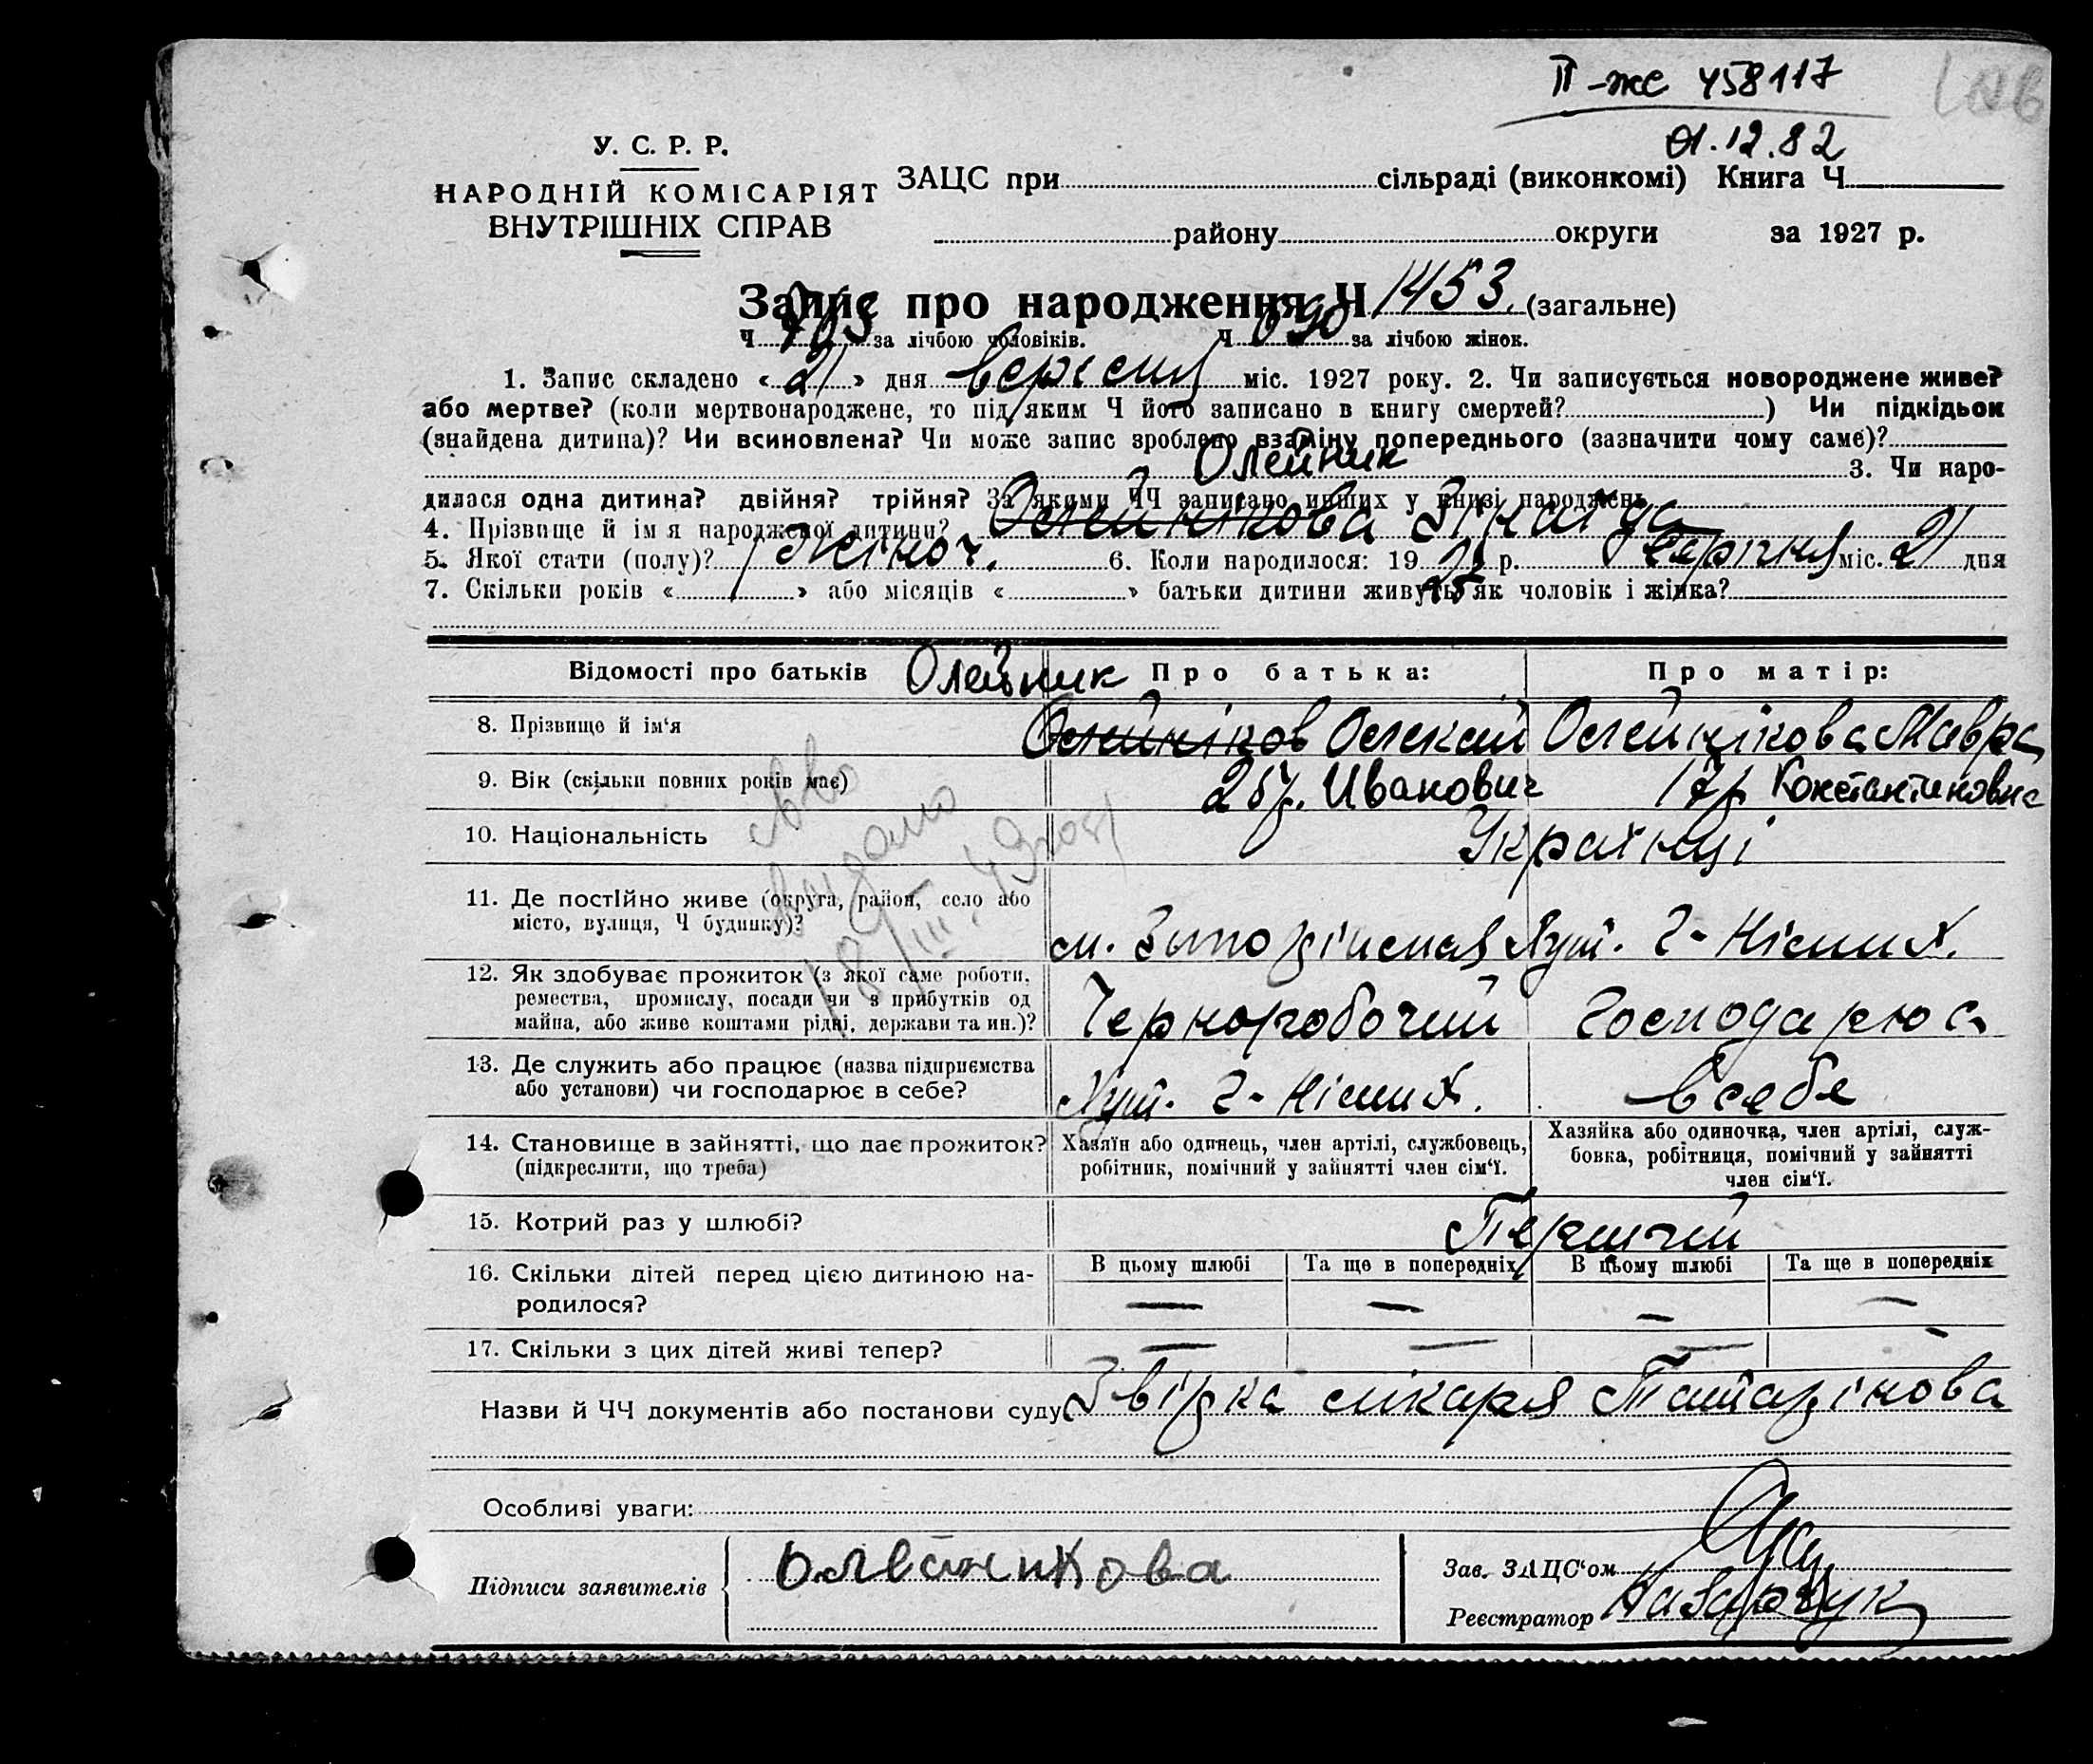 ІІ-жс 458117
01.12.82
У. С. Р. Р.
НАРОДНІЙ КОМІСАРІЯТ
ВНУТРІШНІХ СПРАВ
ЗАЦС при сільраді (виконкомі) Книга Ч
району округи за 1927 р.
Запис про народження Ч 1453. (загальне)
Ч 763 за лічбою чоловіків. Ч 690 за лічбою жінок.
1. Запис складено «21» дня вересня міс. 1927 року. 2. Чи записується новороджене живе?
або мертве? (коли мертвонароджене, то під яким Ч його записано в книгу смертей? ) Чи підкідьок
(знайдена дитина)? Чи всиновлена? Чи може запис зроблено взаміну попереднього (зазначити чому саме)?
Олейник 3. Чи наро-
дилася одна дитина? двійня? трійня? За якими ЧЧ записано инших у книзі народжень
4. Прізвище й ім я народженої дитини? Олейнікова Зінаїда
5. Якої стати (полу)? Жіноч. 6. Коли народилося: 19 р. міс. 21 дня
7. Скільки років « 1 » або місяців « » батьки дитини живуть як чоловік і жінка?
Відомості про батьків Олейник Про батька: Про матір:
8. Прізвище й ім‘я Олейніков Олексій Олейнікова Мавра
9. Вік (скільки повних років має) 25р. Иванович 17р Константиновна
10. Національність Українці
11. Де постійно живе (округа, район, село або
місто, вулиця, Ч будинку)?
12. Як здобуває прожиток (з якої саме роботи,
ремества, промислу, посади чи з прибутків од
майна, або живе коштами рідні, держави та ин.)? Черноробочий Господарює
13. Де служить або працює (назва підприємства
або установи) чи господарює в себе? в себе
14. Становище в зайнятті, що дає прожиток?
(підкреслити, що треба)
Хазяїн або одинець, член артілі, службовець,
робітник, помічний у зайнятті член сім‘ї.
Хазяйка або одиночка, член артілі, служ-
бовка, робітниця, помічний у зайнятті
член сім‘ї.
15. Котрий раз у шлюбі? Перший
16. Скільки дітей перед цією дитиною на-
родилося?
В цьому шлюбі Та ще в попередніх В цьому шлюбі Та ще в попередніх
— — — —
17. Скільки з цих дітей живі тепер? — — — —
Назви й ЧЧ документів або постанови суду Звірка лікаря
Особливі уваги:
Підписи заявителів Олейникова
Зав. ЗАЦС‘ом
Реєстратор Назарчук